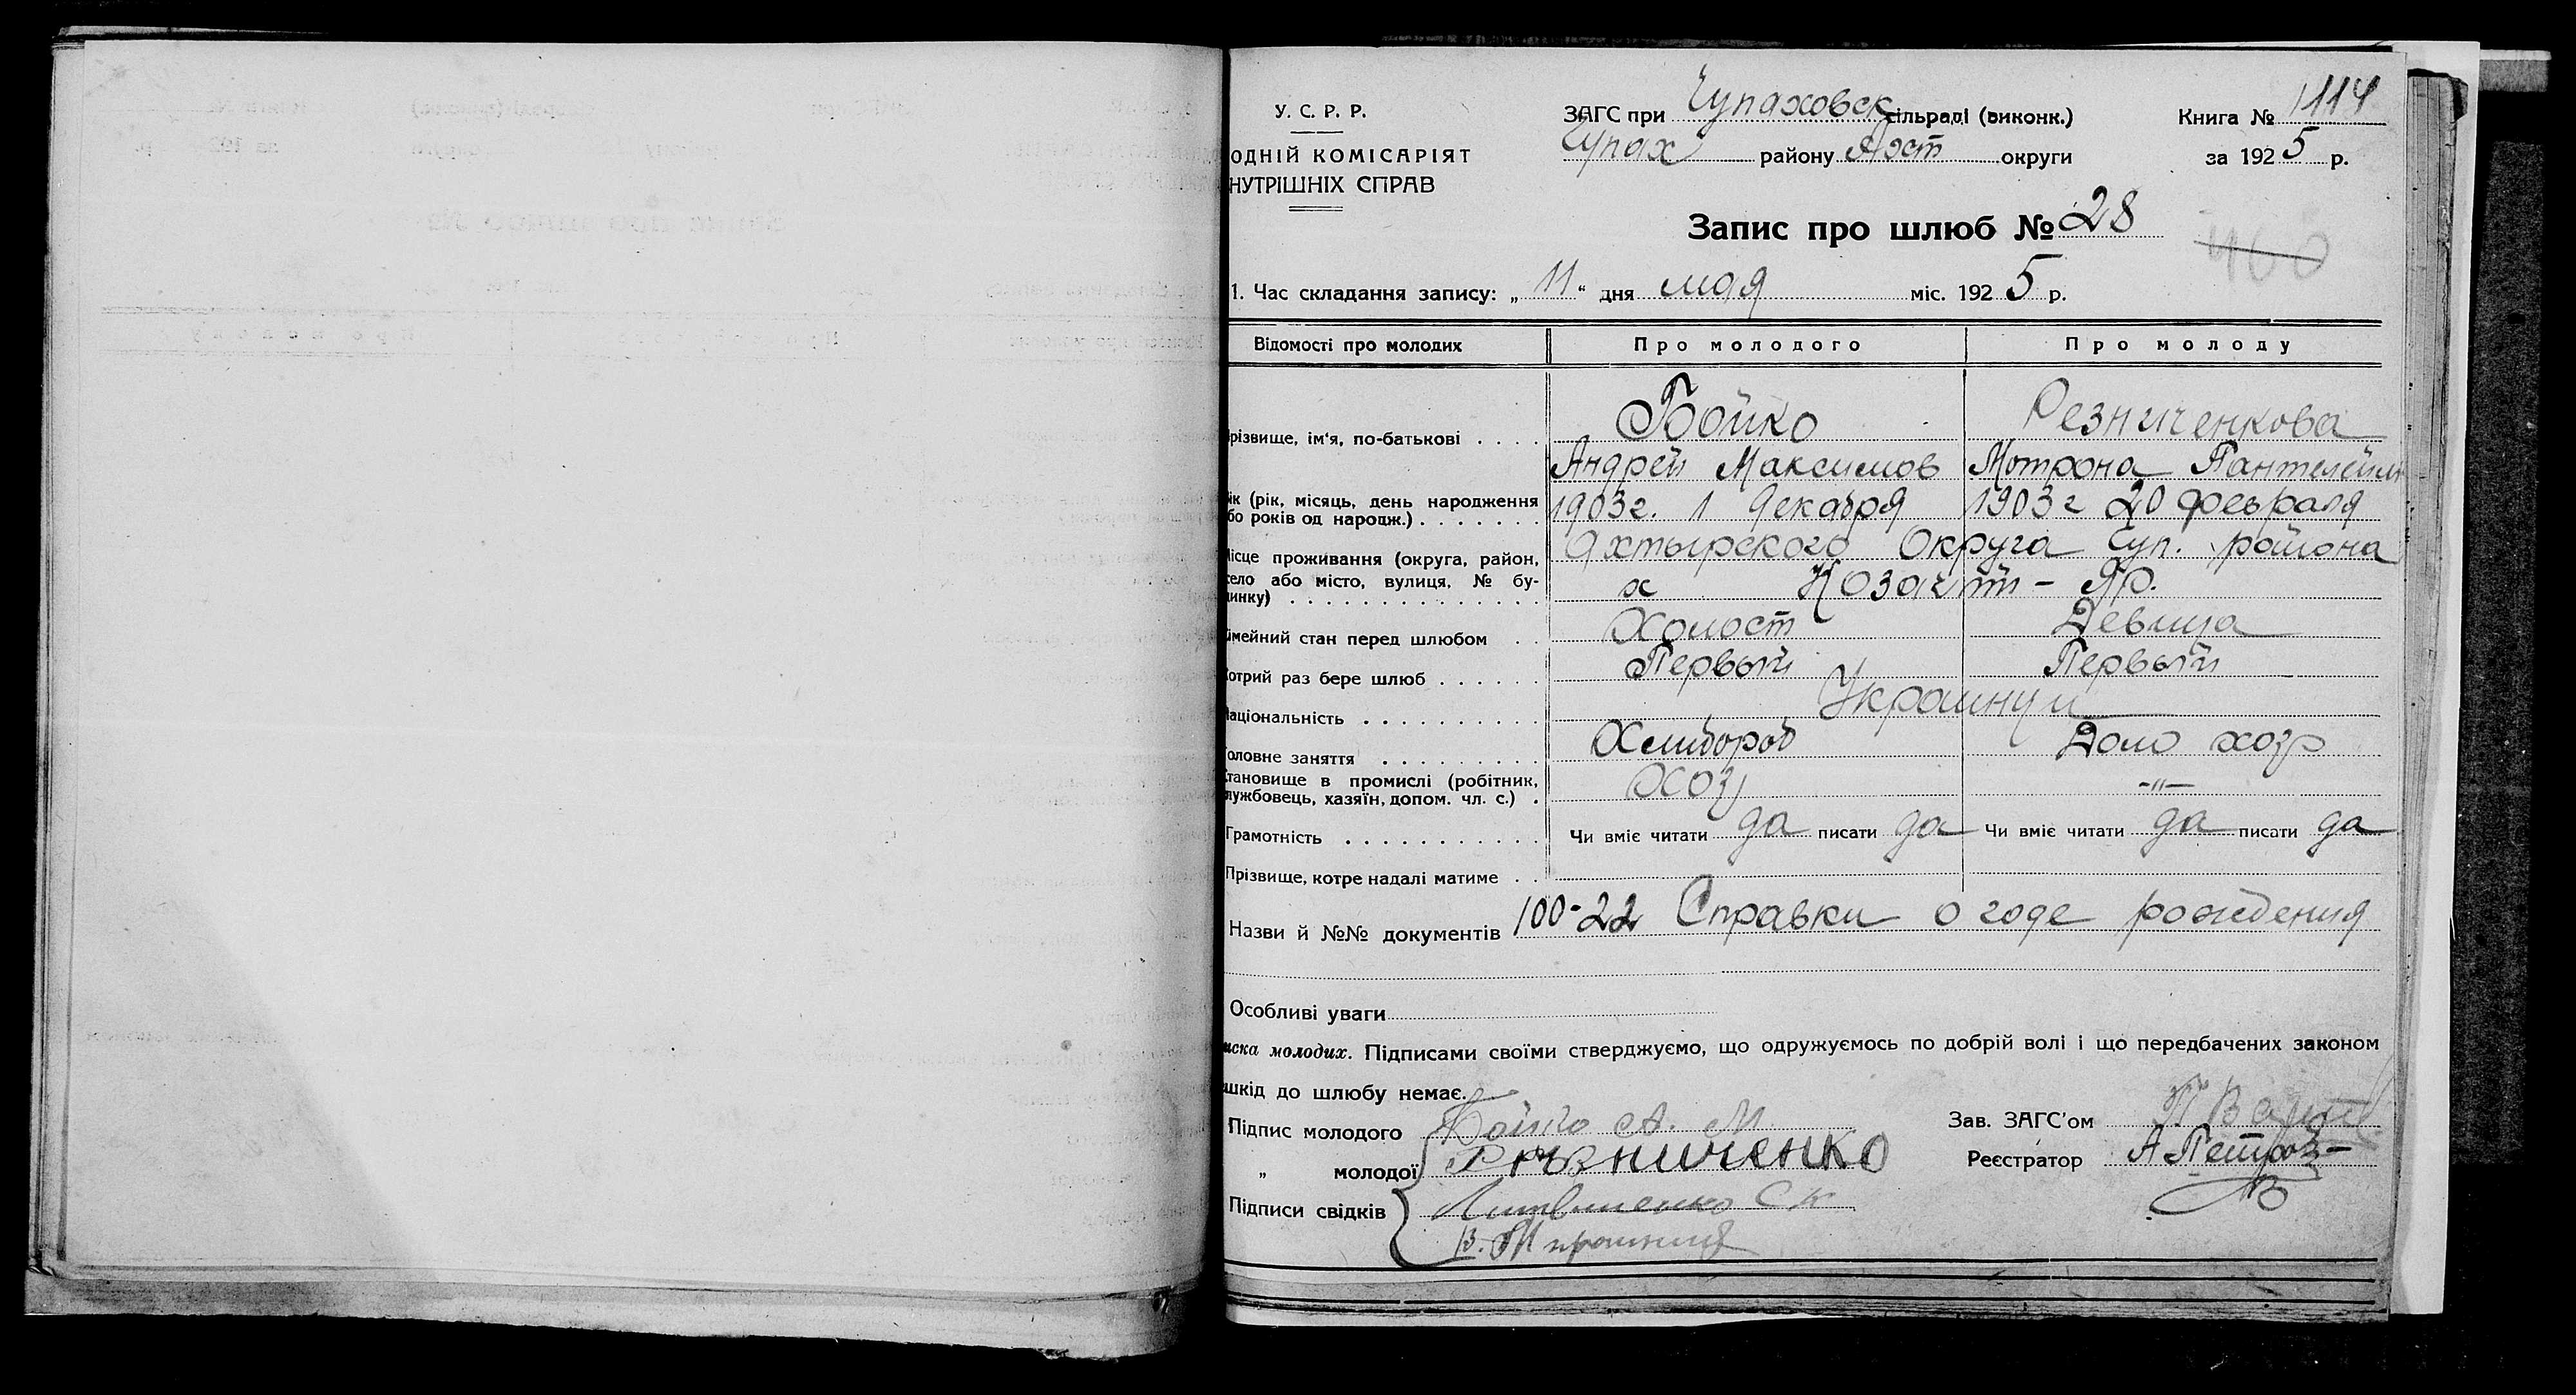 У. С. Р. Р.
ОДНІЙ КОМІСАРІЯТ
НУТРІШНІХ СПРАВ
ЗАГС при Чупаховск сільраді (виконк.)
Чупах району округи
Книга № 1114
за 1925 р.
Запис про шлюб № 28
460
1. Час складання запису: „ 11 “ дня мая міс. 1925 р.
Відомості про молодих Про молодого Про молоду
різвище, ім'я, по-батькові . . . . Бойко Резниченкова
Андрей Максимов Мотрона Пантелейм
ік (рік, місяць, день народження 1903г. 1 декабря 1903г 20 февраля
бо років од народж.) . . . . . . .
ісце проживання (округа, район, Ахтырского Округа Чуп. района
село або місто, вулиця, № бу- х Козач
динку) . . . . . . . . . . . . .
імейний стан перед шлюбом . . Холост Девица
Котрий раз бере шлюб . . . . . . Первый Первый
Національність . . . . . . . . . . Украинци
оловне заняття . . . . . . . . . Хлибороб Дом хозр
тановище в промислі (робітник, Хоз -"-
лужбовець, хазяїн, допом. чл. с.) .
Грамотність . . . . . . . . . . . Чи вміє читати да писати да Чи вміє читати да писати да
Прізвище, котре надалі матиме . .
Назви й №№ документів 100-22 Справки о годе рождения
Особливі уваги
иска молодих. Підписами своїми стверджуємо, що одружуємось по добрій волі і що передбачених законом
шкід до шлюбу немає.
Підпис молодого Бойко А. М. Зав. ЗАГС'ом
„ молодої Резниченко Реєстратор А Петров
Підписи свідків Литвиненко С К